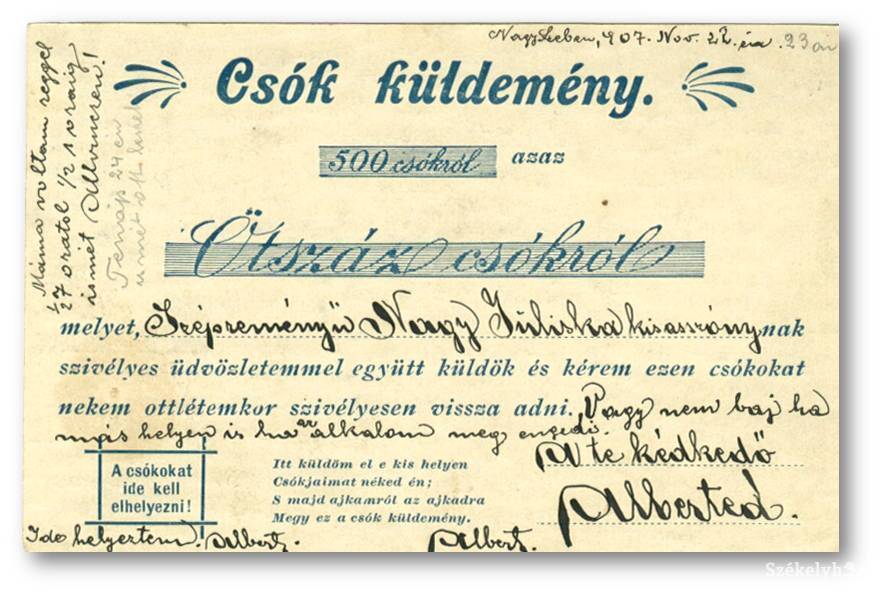 Nagyszeben, 907. Nov. 22. én 23 án
Csók küldemény.
500 csókról azaz
Ötszáz csókról
melyet, Szépreményű Nagy Juliska kisasszonynak
szivélyes üdvözletemmel együtt küldök és kérem ezen csókokat
nekem ottlétemkor szivélyesen vissza adni. Vagy nem baj ha
más helyen is ha az alkalom meg engedi.
A te kédkedő
Alberted.
A csókokat
ide kell
elhelyezni!
Itt küldöm el e kis helyen
Csókjaimat néked én;
S majd ajkamról az ajkadra
Megy ez a csók küldemény.
Ide helyeztem! Albert. Albert.
Máma voltam reggel
órátol 1/2 1 oráig
ismét Alvinczen!
24 én
ismét ott
Székelyh